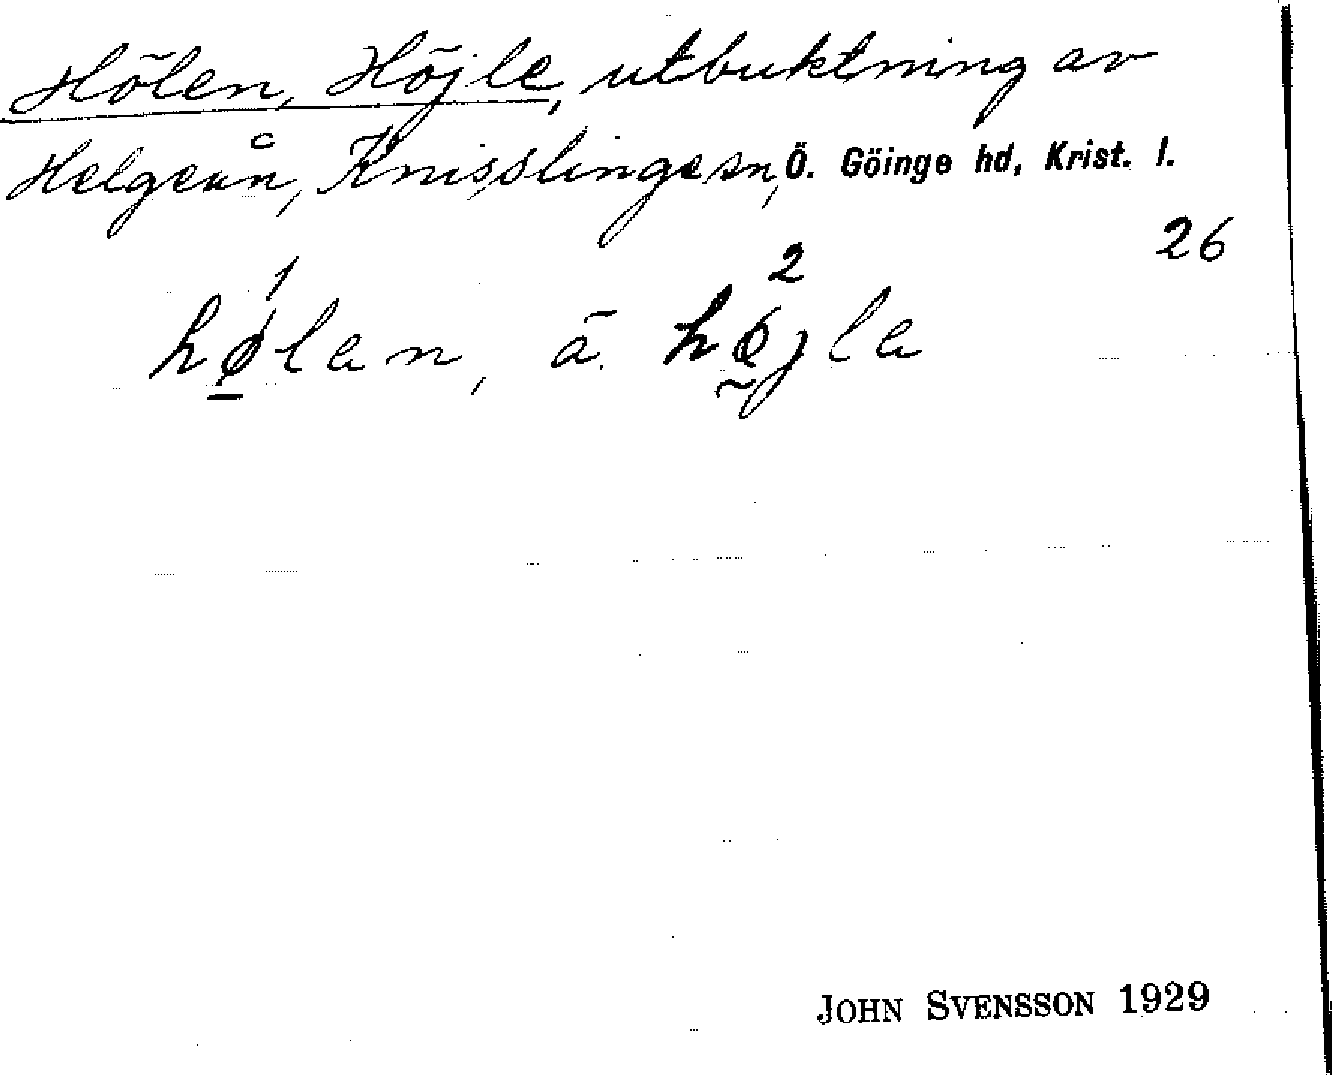 Hölen, Höjle, utbuktning av
Helgeån, Knisslinge sn, Ö. Göinge hd, Krist. l.
26
1 2
hølan, ä. højla
JOHN SVENSSON 1929